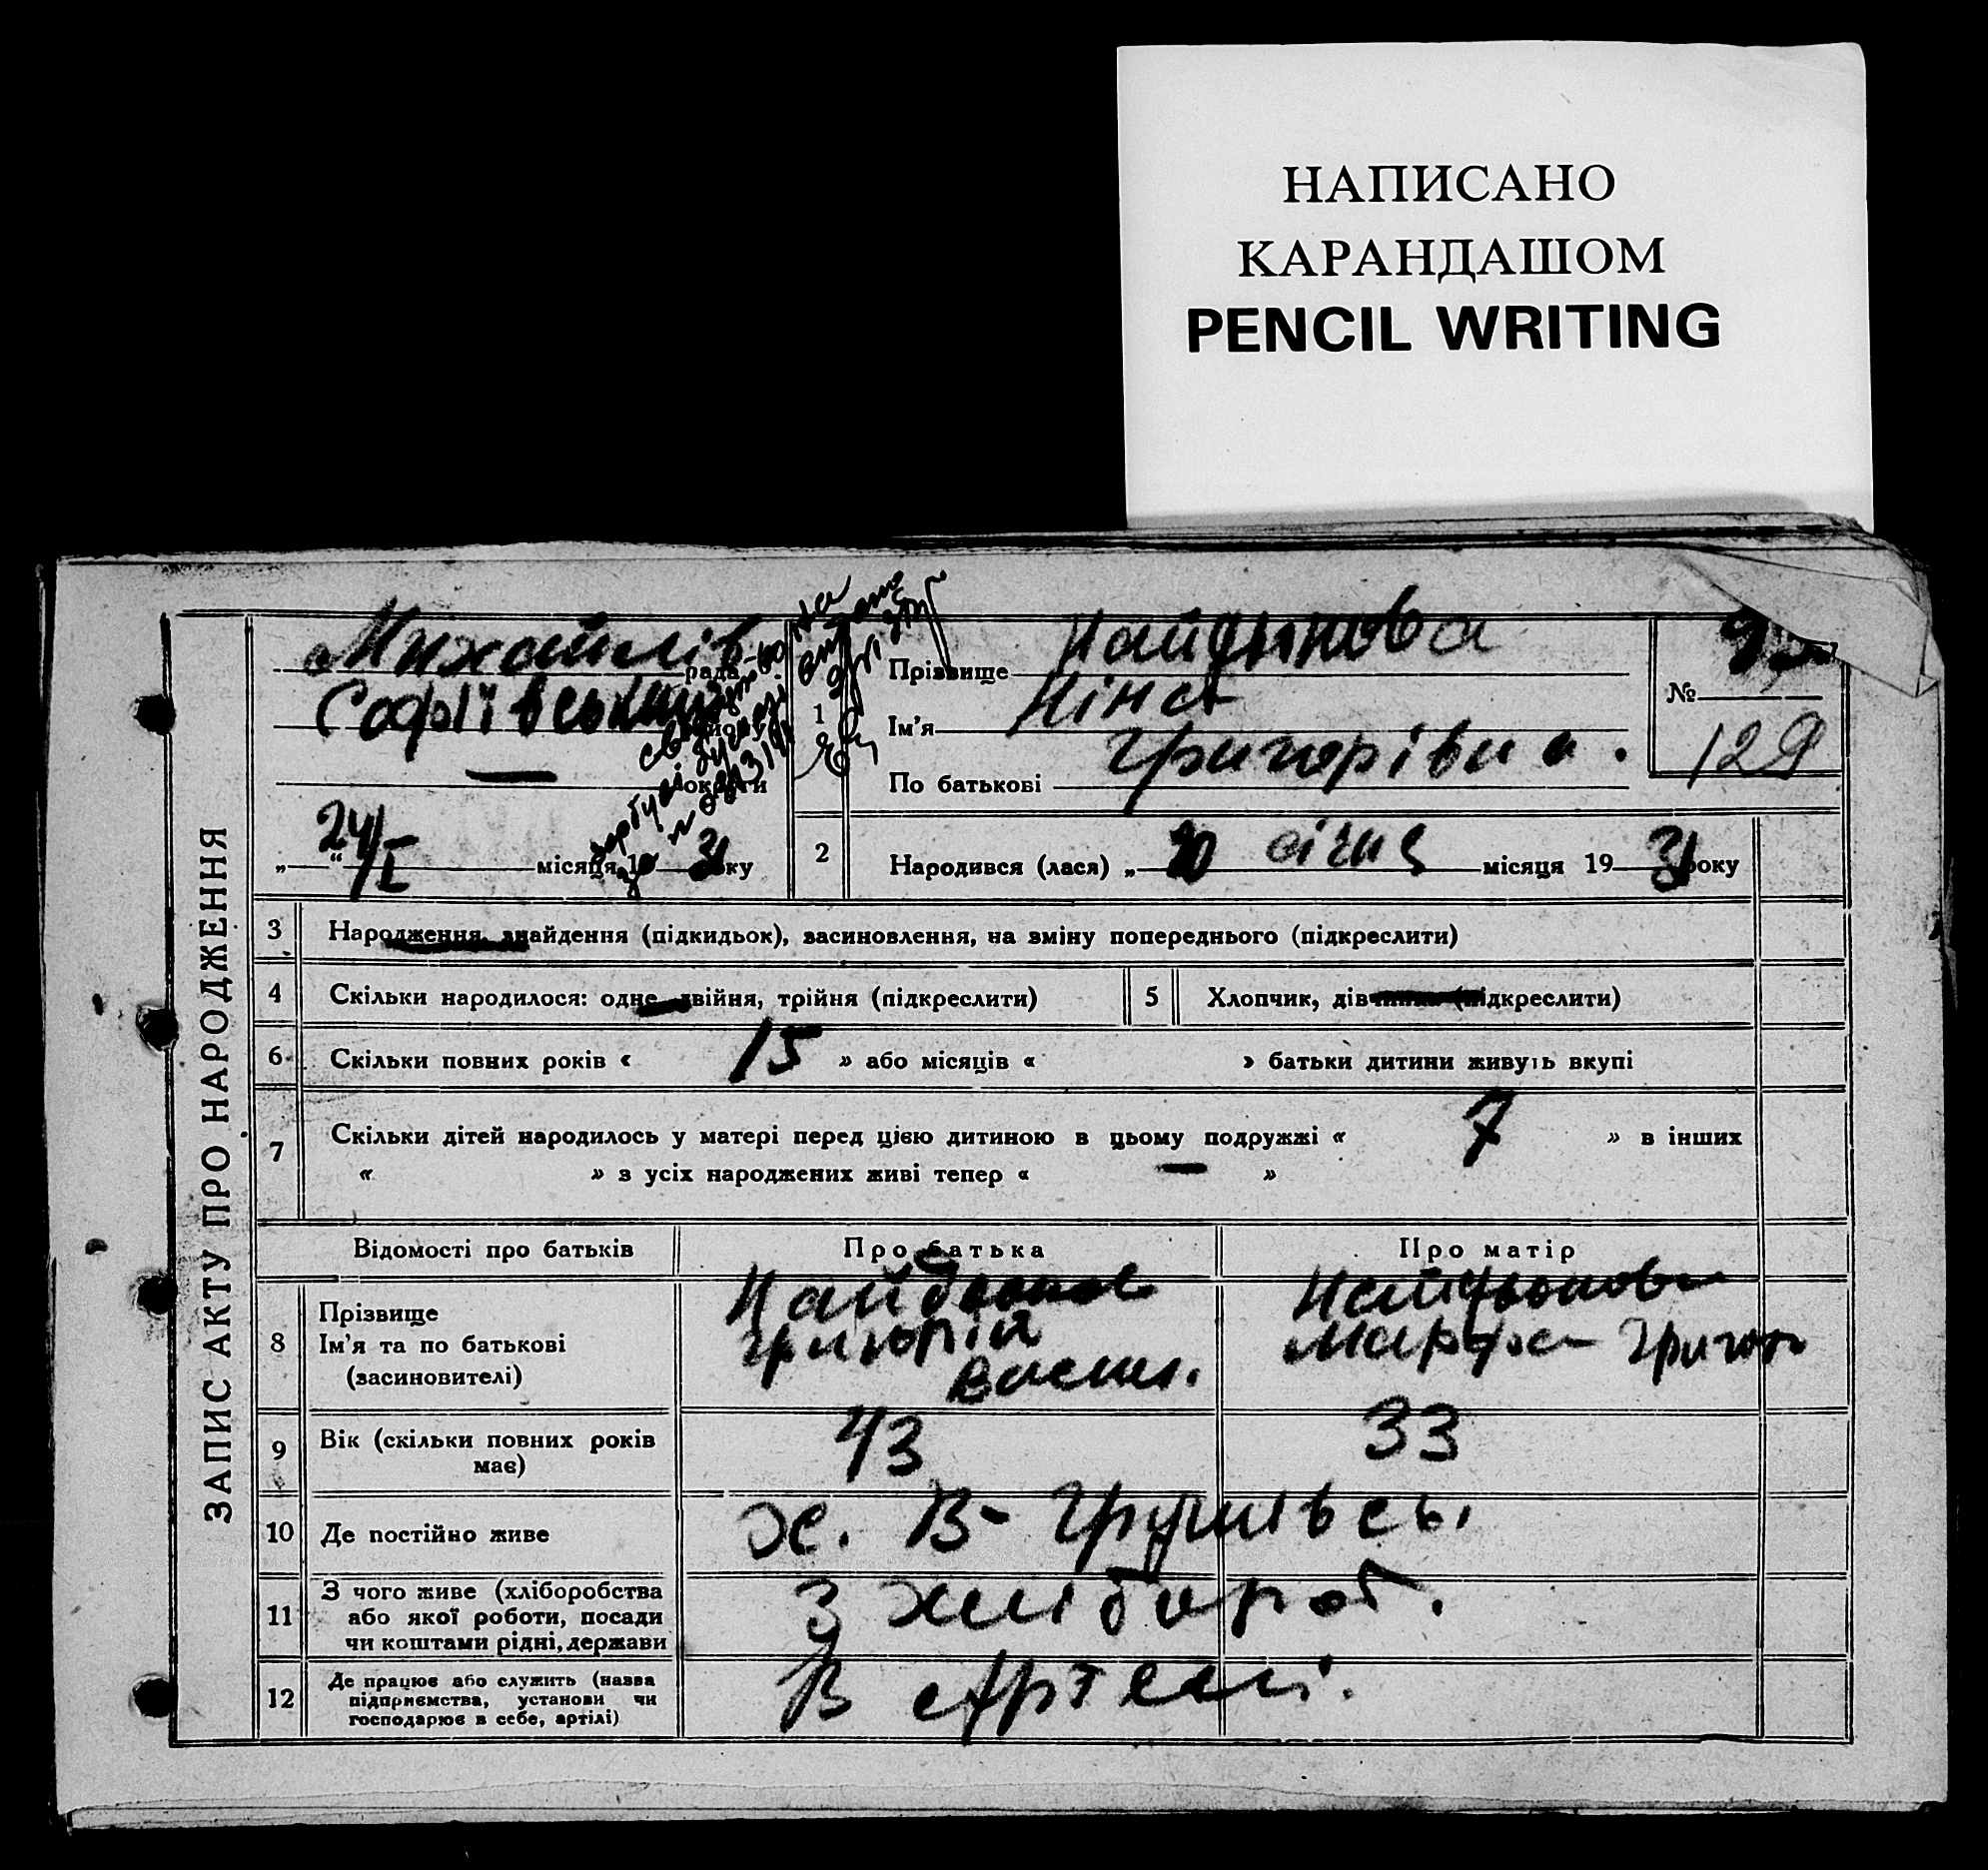 НАПИСАНО
КАРАНДАШОМ
PENCIL WRITING
ЗАПИС АКТУ ПРО НАРОДЖЕННЯ
Михайлів рада
Софіївський
—
округи
„24/I“ місяця 19 31 року
1
Прізвище Найдьонова
Ім'я Ніна
По батькові Григорівна.
№
129
2
Народився (лася) „ 20 січня місяця 19 31 року
3 Народження, знайдення (підкидьок), засиновлення, на зміну попереднього (підкреслити)
4 Скільки народилося: одне, двійня, трійня (підкреслити)
5 Хлопчик, дівчинка (підкреслити)
6 Скільки повних років « 15 » або місяців « » батьки дитини живуть вкупі
7 Скільки дітей народилось у матері перед цією дитиною в цьому подружжі « 7 » в інших
« » з усіх народжених живі тепер « — »
Відомості про батьків Про батька Про матір
8 Прізвище
Ім'я та по батькові
(засиновителі)
Найдьонов
Григорій
Васил.
Найдьонова
Марфа Григор
9 Вік (скільки повних років
має)
43 33
10 Де постійно живе х. В-Грушівсь.
11 З чого живе (хліборобства
або якої роботи, посади
чи коштами рідні, держави
З хлібороб.
12 Де працює або служить (назва
підприємства, установи чи
господарює в себе, артілі)
В артелі.